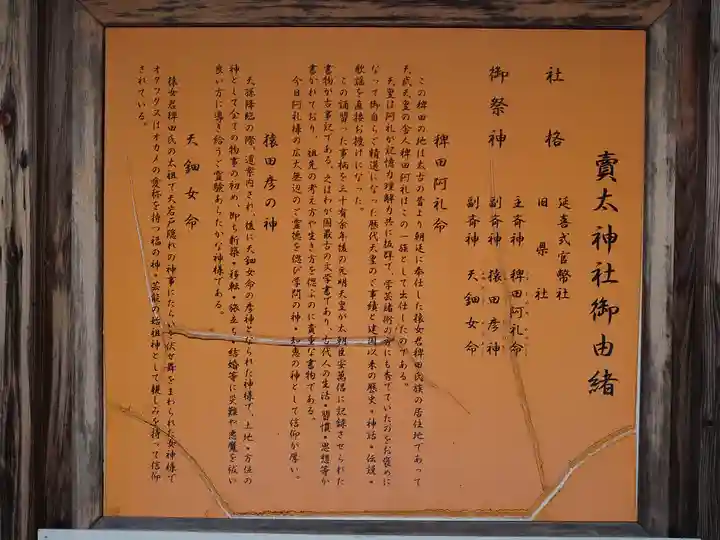 賣太神社御由緒
社格
延喜式官幣社
旧県社
御祭神
主斎神 稗田阿礼命
副斎神 猿田彦神
副斎神 天鈿女命
稗田阿礼命
この稗田の地は太古の昔より朝廷に奉仕した猿女君稗田氏族の居住地であって
天武天皇の舎人稗田阿礼はこの一族として出仕したのである。
天皇は阿礼が記憶力理解力共に抜群で、学芸諸術の方にも秀でていたのをお褒めに
なって御自らご精選になった歴代天皇のご事績と建国以来の歴史・神話・伝説・
歌謡を直接お授けになった。
この誦習った事柄を三十有余年後の元明天皇が太朝臣安萬侶に記録させられた
書物が古事記である。之はわが国最古の文学書であり、古代人の生活・習慣・思想等が
書かれており、祖先の考え方や生き方を偲ぶのに貴重な書物である。
今日阿礼様の広大無辺のご霊徳を偲び学問の神・知恵の神として信仰が厚い。
猿田彦の神
天孫降臨の際、道案内され、後に天鈿女命の彦神となられた神様で、土地・方位の
神として全ての物事の初め、即ち新築・移転・旅立ち・結婚等に災難や悪魔を祓い
良い方に導き給うご霊験あらたかな神様である。
天鈿女命
猿女君稗田氏の太祖で天岩戸隠れの神事にたらいを伏せ舞をまわられた女神様で
オタフクまたはオカメの愛称を持つ福の神・芸能の始祖神として親しみを持って信仰
されている。